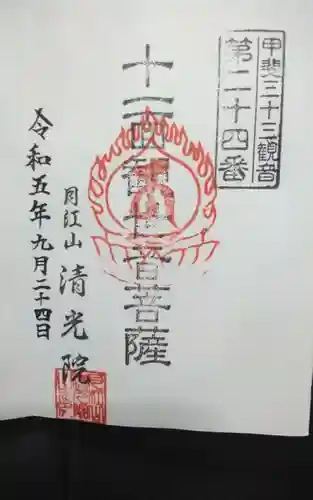 甲斐三十三観音
第二十四番
十一面観世音菩薩
月江山 清光院
令和五年九月二十四日